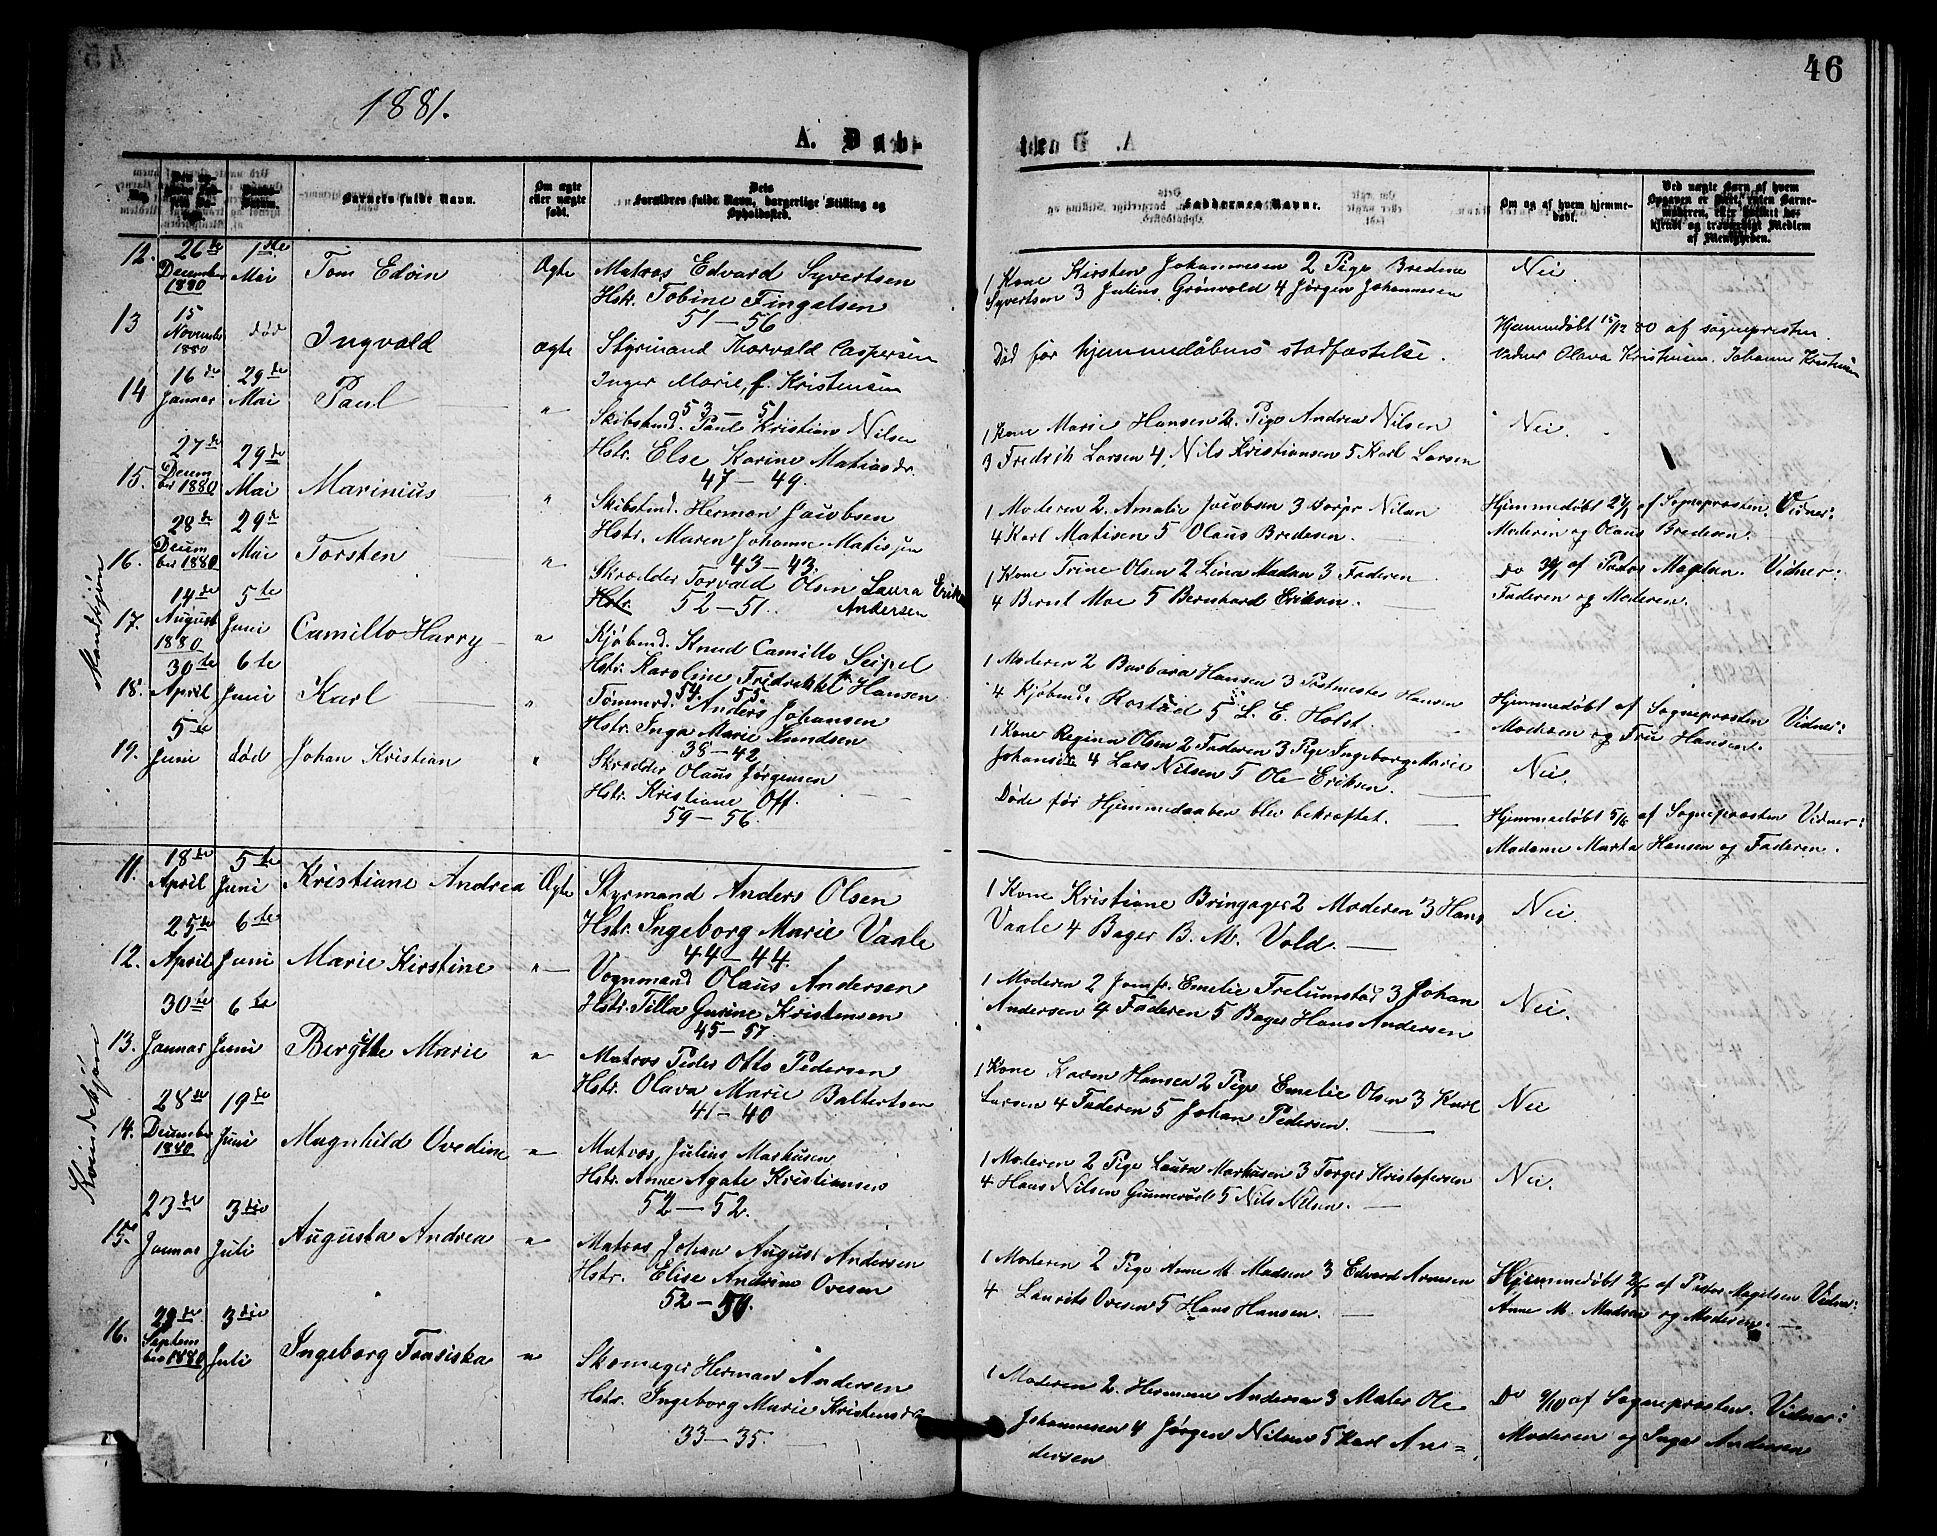 46
1881.
A. Døbte
No.
Daabs-Datum.
Barnets fulde Navn.
Om ægte eller uægte født.
Dets Forældres fulde Navn, borgerlige Stilling og Opholdssted.
Faddernes Navne.
Om og af hvem hjemmedøbt.
Ved uægte Børn af hvem Opgaven er skeet, enten Barnemoderen, eller
Mandkjøn
12. 26de December 1880 1ste Mai Tom Edvin Ægte Matros Edvard Syvertsen
Hstr. Tobine Fingalsen
51–56
1 Kone Kirsten Johannesen 2 Pige Bredine
Syvertsen 3 Julius Grønvold 4 Jørgen Johannesen
Nei
13 15 November 1880 død Ingvald Ægte Styrmand Thorvald Caspersen
Inger Marie, f. Kristensen
53–51
Død før hjemmedåbens stadfæstelse.
Hjemmedøbt 15/12 80 af sognepresten.
Vidner Olava Kristensen. Johanne Kristensen
14 16de Januar 29de Mai Paul " Skibstmd. Paul Kristian Nilsen
Hstr. Else Karine Matiasdr.
47–49.
1 Kone Marie Hansen 2. Pige Andrea Nilsen
3 Fredrik Larsen 4 Nils Kristiansen 5 Karl Larsen
Nei.
15. 27de December 1880 29de Mai Marinius " Skibstmd. Herman Jacobsen
Hstr. Maren Johanne Matisen
43–43.
1 Moderen 2. Amalie Jacobsen 3 Nilsen
4 Karl Matisen 5 Olaus Bredesen.
Hjemmedøbt af Sognepresten. Vidner:
Moderen og Olaus Bredesen.
16. 28de December 1880 29de Mai Torsten " Skrædder Torvald Olsen Laura
Hstr. 52–51. Andersen
1 Kone Trine Olsen 2 Lina Madsen 3 Faderen
4 Bernt Moe 5 Bernhard Eriksen.
Do af Pastor Magelsen. Vidner:
Faderen og Moderen.
17. 14de August 1880 5te Juni Camillo Harry " Kjøbmd. Knud Camillo Seipel
Hstr. Karoline Fredrikke Hansen
54. 55
1 Moderen 2 Barbara Hansen 3 Postmester Hansen
4 Kjøbmd. Rostad 5 L. E. Holst.
Hjemmedøbt af Sognepresten Vidner:
Moderen og Fru Hansen.
18. 30te April 6te Juni Karl " Tømmerd. Anders Johansen
Hstr. Inga Marie Knudsen
38–42
1 Kone Regina Olsen 2 Faderen 3 Pige Ingeborg Marie
Johansdr 4 Lars Nilsen 5 Ole Eriksen.
Nei.
19. 5te Juni død Johan Kristian " Skrædder Olaus Jørgensen
Hstr. Kristiane Off.
59–56.
Døde før Hjemmedaaben blev bekræftet.
Hjemmedøbt 5/6 af Sognepresten Vidner:
Madame Marta Hansen og Faderen.
Kvindekjøn
11. 18de April 5te Juni Kristiane Andrea Ægte Styrmand Anders Olsen
Hstr. Ingeborg Marie Vaale
44–44.
1 Kone Kristiane Bringager 2 Moderen 3 Hans
Vaale 4 Bager B. M. Vold.
Nei.
12. 25de April 6te Juni Marie Kirstine " Vognmand Olaus Andersen
Hstr. Tilla Gurine Kristensen
45–57
1 Moderen 2 Jomfr. Emelie Trelumstad 3 Johan
Andersen 4 Faderen 5 Bager Hans Andersen
Nei.
13. 30te Januar 6te Juni Bergitte Marie " Matros Peder Otto Pedersen
Hstr. Olava Marie Baltertsen
41–40
1 Kone Karen Hansen 2 Pige Emelie Olsen 3 Karl
Larsen 4 Faderen 5 Johan Pedersen.
Nei
14. 28de December 1880 19de Juni Magnhild Ovedine " Matros, Julius Markusen
Hstr. Anne Agate Kristiansen
52–52.
1 Moderen 2 Pige Laura Markusen 3 Torger Kristofersen
4 Hans Nilsen Gunnerød 5 Nils Nilsen.
Nei.
15. 23de Januar 3die Juli Augusta Andrea " Matros Johan August Andersen
Hstr. Elise Andrine Ovesen
52–50.
1 Moderen 2 Pige Anne M. Madsen 3 Edvard Arnesen
4 Laurits Ovesen 5 Hans Hansen.
Hjemmedøbt af Pastor Magelsen Vidner:
Anne M. Madsen og Moderen.
16. 29de September 1880 3die Juli Ingeborg Fransiska " Skomager Herman Andersen
Hstr. Ingeborg Marie Kristensdr.
33–35.
1 Moderen 2. Hermine Andersen 3 Mater Ole
Johannesen 4 Jørgen Nilsen 5 Karl An=
dersen
Do 9/10 af Sognepresten. Vidner:
Moderen og Inga Andersen